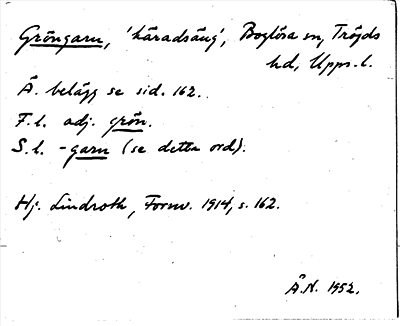 Gröngarn, 'häradsäng', Boglösa sn, Trögds
hd, Upps. l.
Ä. belägg se sid. 162.
F. l. adj. grön.
S. l. -garn (se detta ord).
Hj. Lindroth, Fornv. 1914, s. 162.
Å.N. 1952.